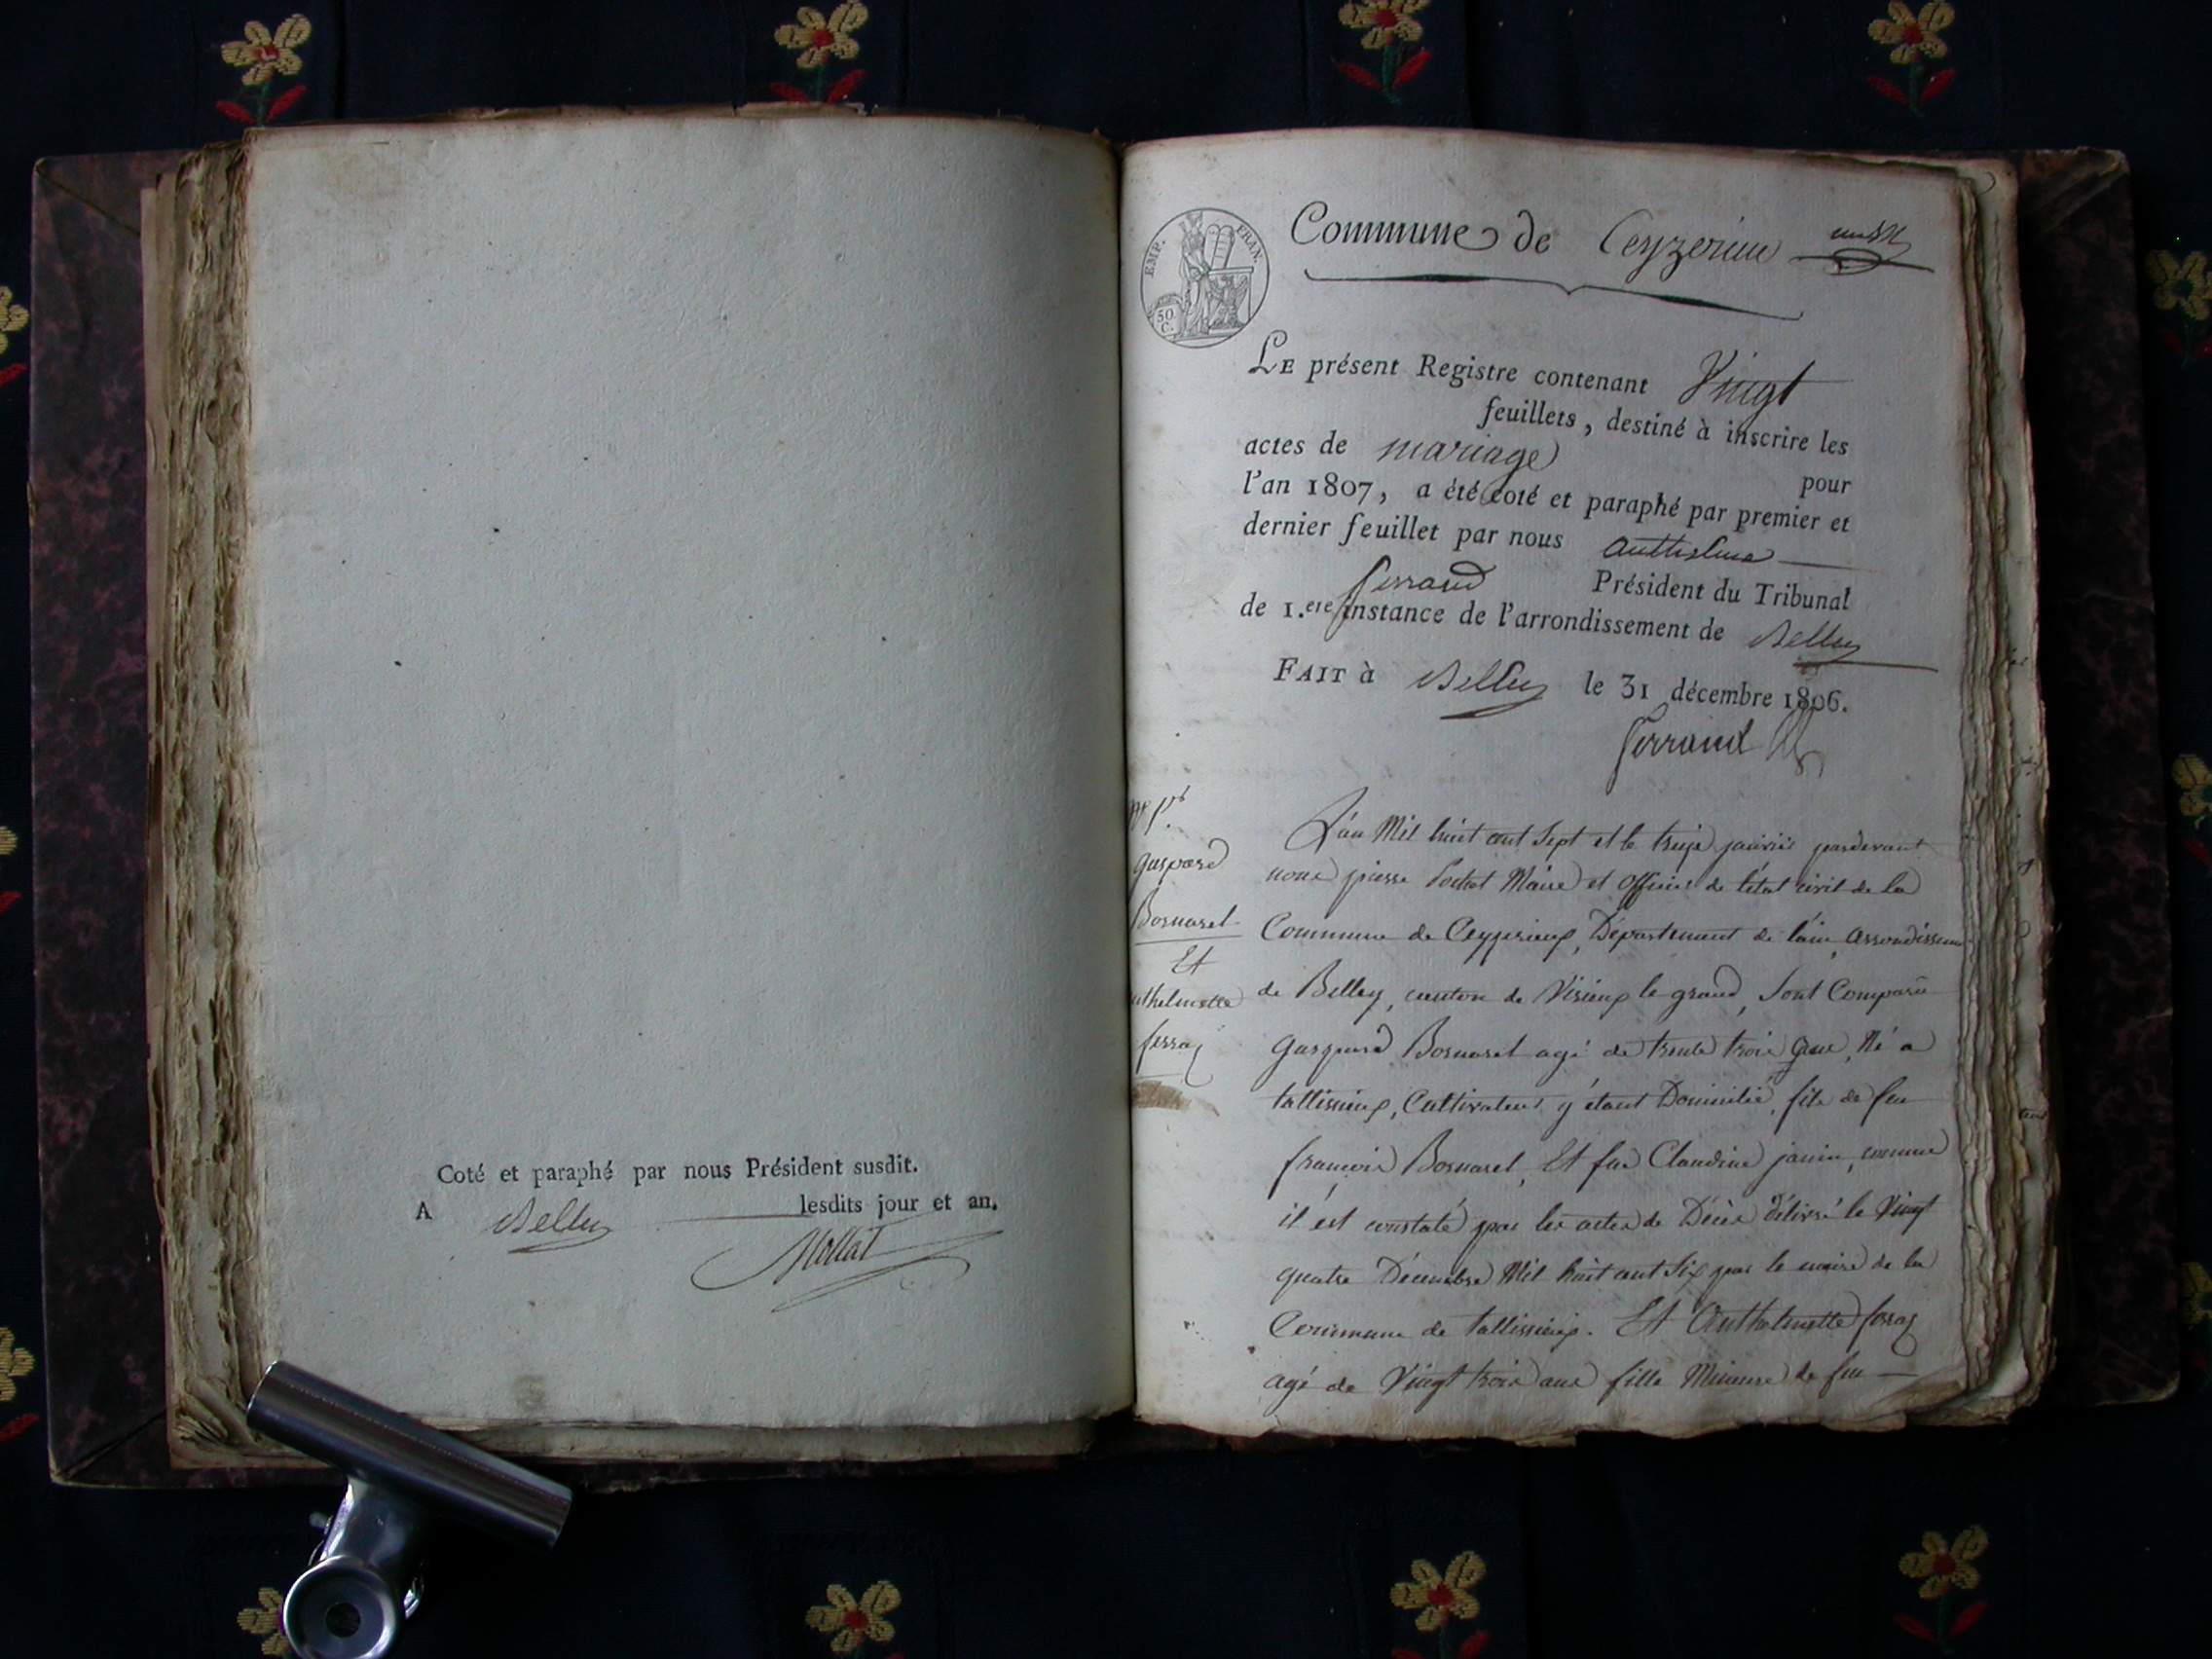 Coté et paraphé par nous Président susdit.
A Belley lesdits jour et an.
Mollat
EMP. FRAN.
50 C.
Commune de Ceyzerieu
LE présent Registre contenant Vingt
feuillets, destiné à inscrire les
actes de mariage pour
l'an 1807, a été coté et paraphé par premier et
dernier feuillet par nous Anthelme
ferrand Président du Tribunal
de 1.ere instance de l'arrondissement de Belley
FAIT à Belley le 31 décembre 1806.
ferrand
gaspard
Bornarel
Et
nthelmette
ferraz
L'an Mil huit cent Sept et le treize janvier pardevant
nous pierre Pochet Maire et officier de l'état civil de la
Commune de Ceyzerieux, Département de l'ain, arrondissem
de Belley, canton de Virieux le grand, Sont Comparu
gaspard Bornarel agé de trente trois ans, Né a
tallissieux, Cultivateur y étant Domicilié, fils de feu
françois Bornarel, Et feue Claudine janin, comme
il est constaté par les actes de Décès délivré le Vingt
quatre Décembre Mil huit cent Six par le maire de la
Commune de tallissieux. Et Anthelmette ferraz
agé de Vingt trois ans fille Mineure de feu